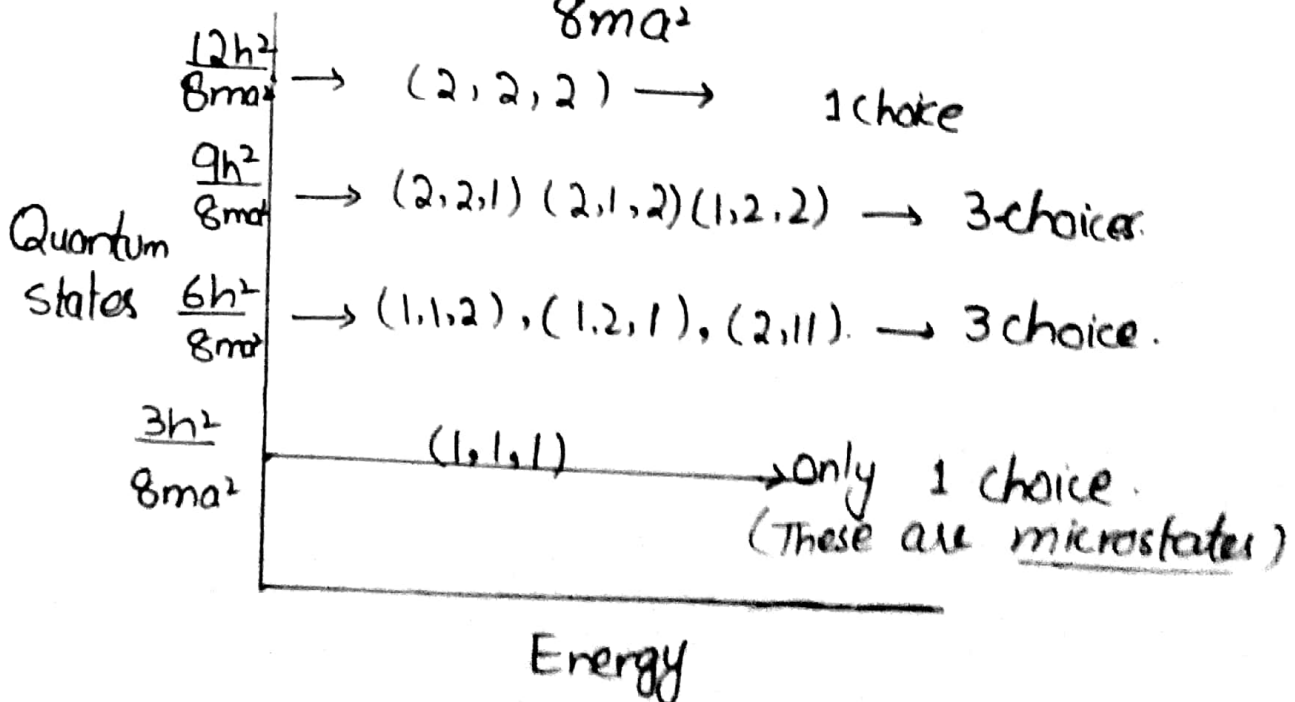 8ma²
12h²/8ma² → (2,2,2) → 1 choice
9h²/8ma² → (2,2,1) (2,1,2) (1,2,2) → 3 choices.
Quantum states
6h²/8ma² → (1,1,2), (1,2,1), (2,11). → 3 choice.
3h²/8ma² (1,1,1) → only 1 choice.
(These are microstates)
Energy